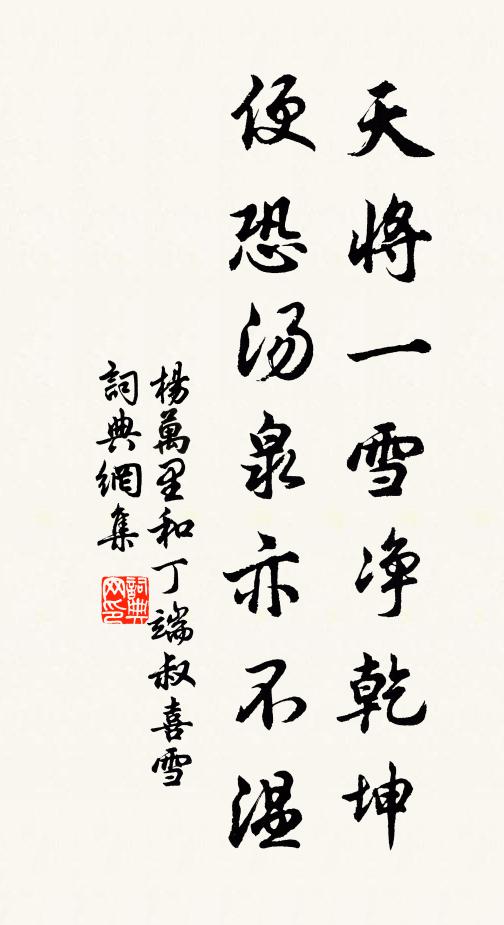 天將一雪净乾坤
便恐汤泉亦不温
楊萬里和丁端叔喜雪
詞典網集
詞典網印